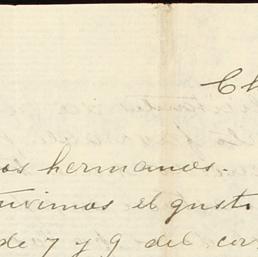 Ch
os hermanos.
uvimos el gusto
de 7 y 9 del cor